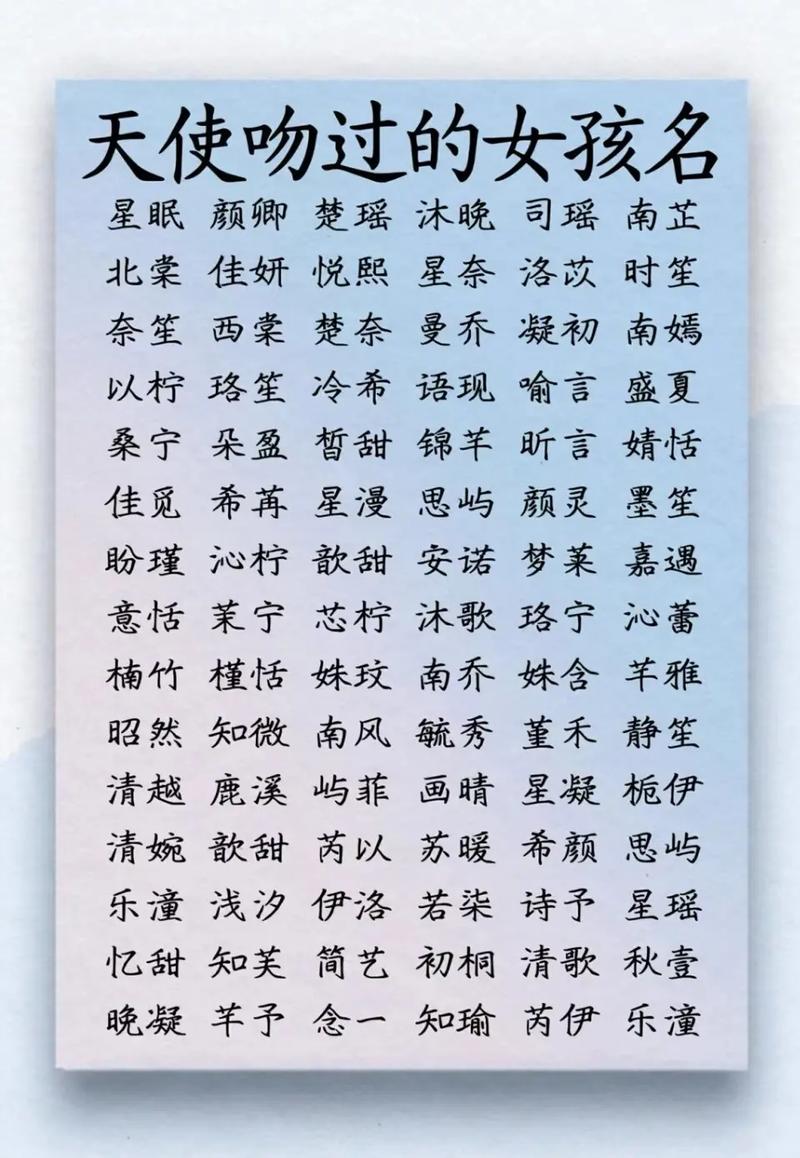 天使吻过的女孩名
星眠 颜卿 楚瑶 沐晚 司瑶 南芷
北棠 佳妍 悦熙 星奈 洛苡 时笙
奈笙 西棠 楚奈 曼乔 凝初 南嫣
以柠 珞笙 冷希 语现 喻言 盛夏
桑宁 朵盈 皙甜 锦芊 昕言 婧恬
佳觅 希苒 星漫 思屿 颜灵 墨笙
盼瑾 沁柠 歆甜 安诺 梦莱 嘉遇
意恬 茉宁 芯柠 沐歌 珞宁 沁蕾
楠竹 槿恬 姝玟 南乔 姝含 芊雅
昭然 知微 南风 毓秀 堇禾 静笙
清越 鹿溪 屿菲 画晴 星凝 栀伊
清婉 歆甜 芮以 苏暖 希颜 思屿
乐潼 浅汐 伊洛 若柒 诗予 星瑶
忆甜 知芙 简艺 初桐 清歌 秋壹
晚凝 芊予 念一 知瑜 芮伊 乐潼